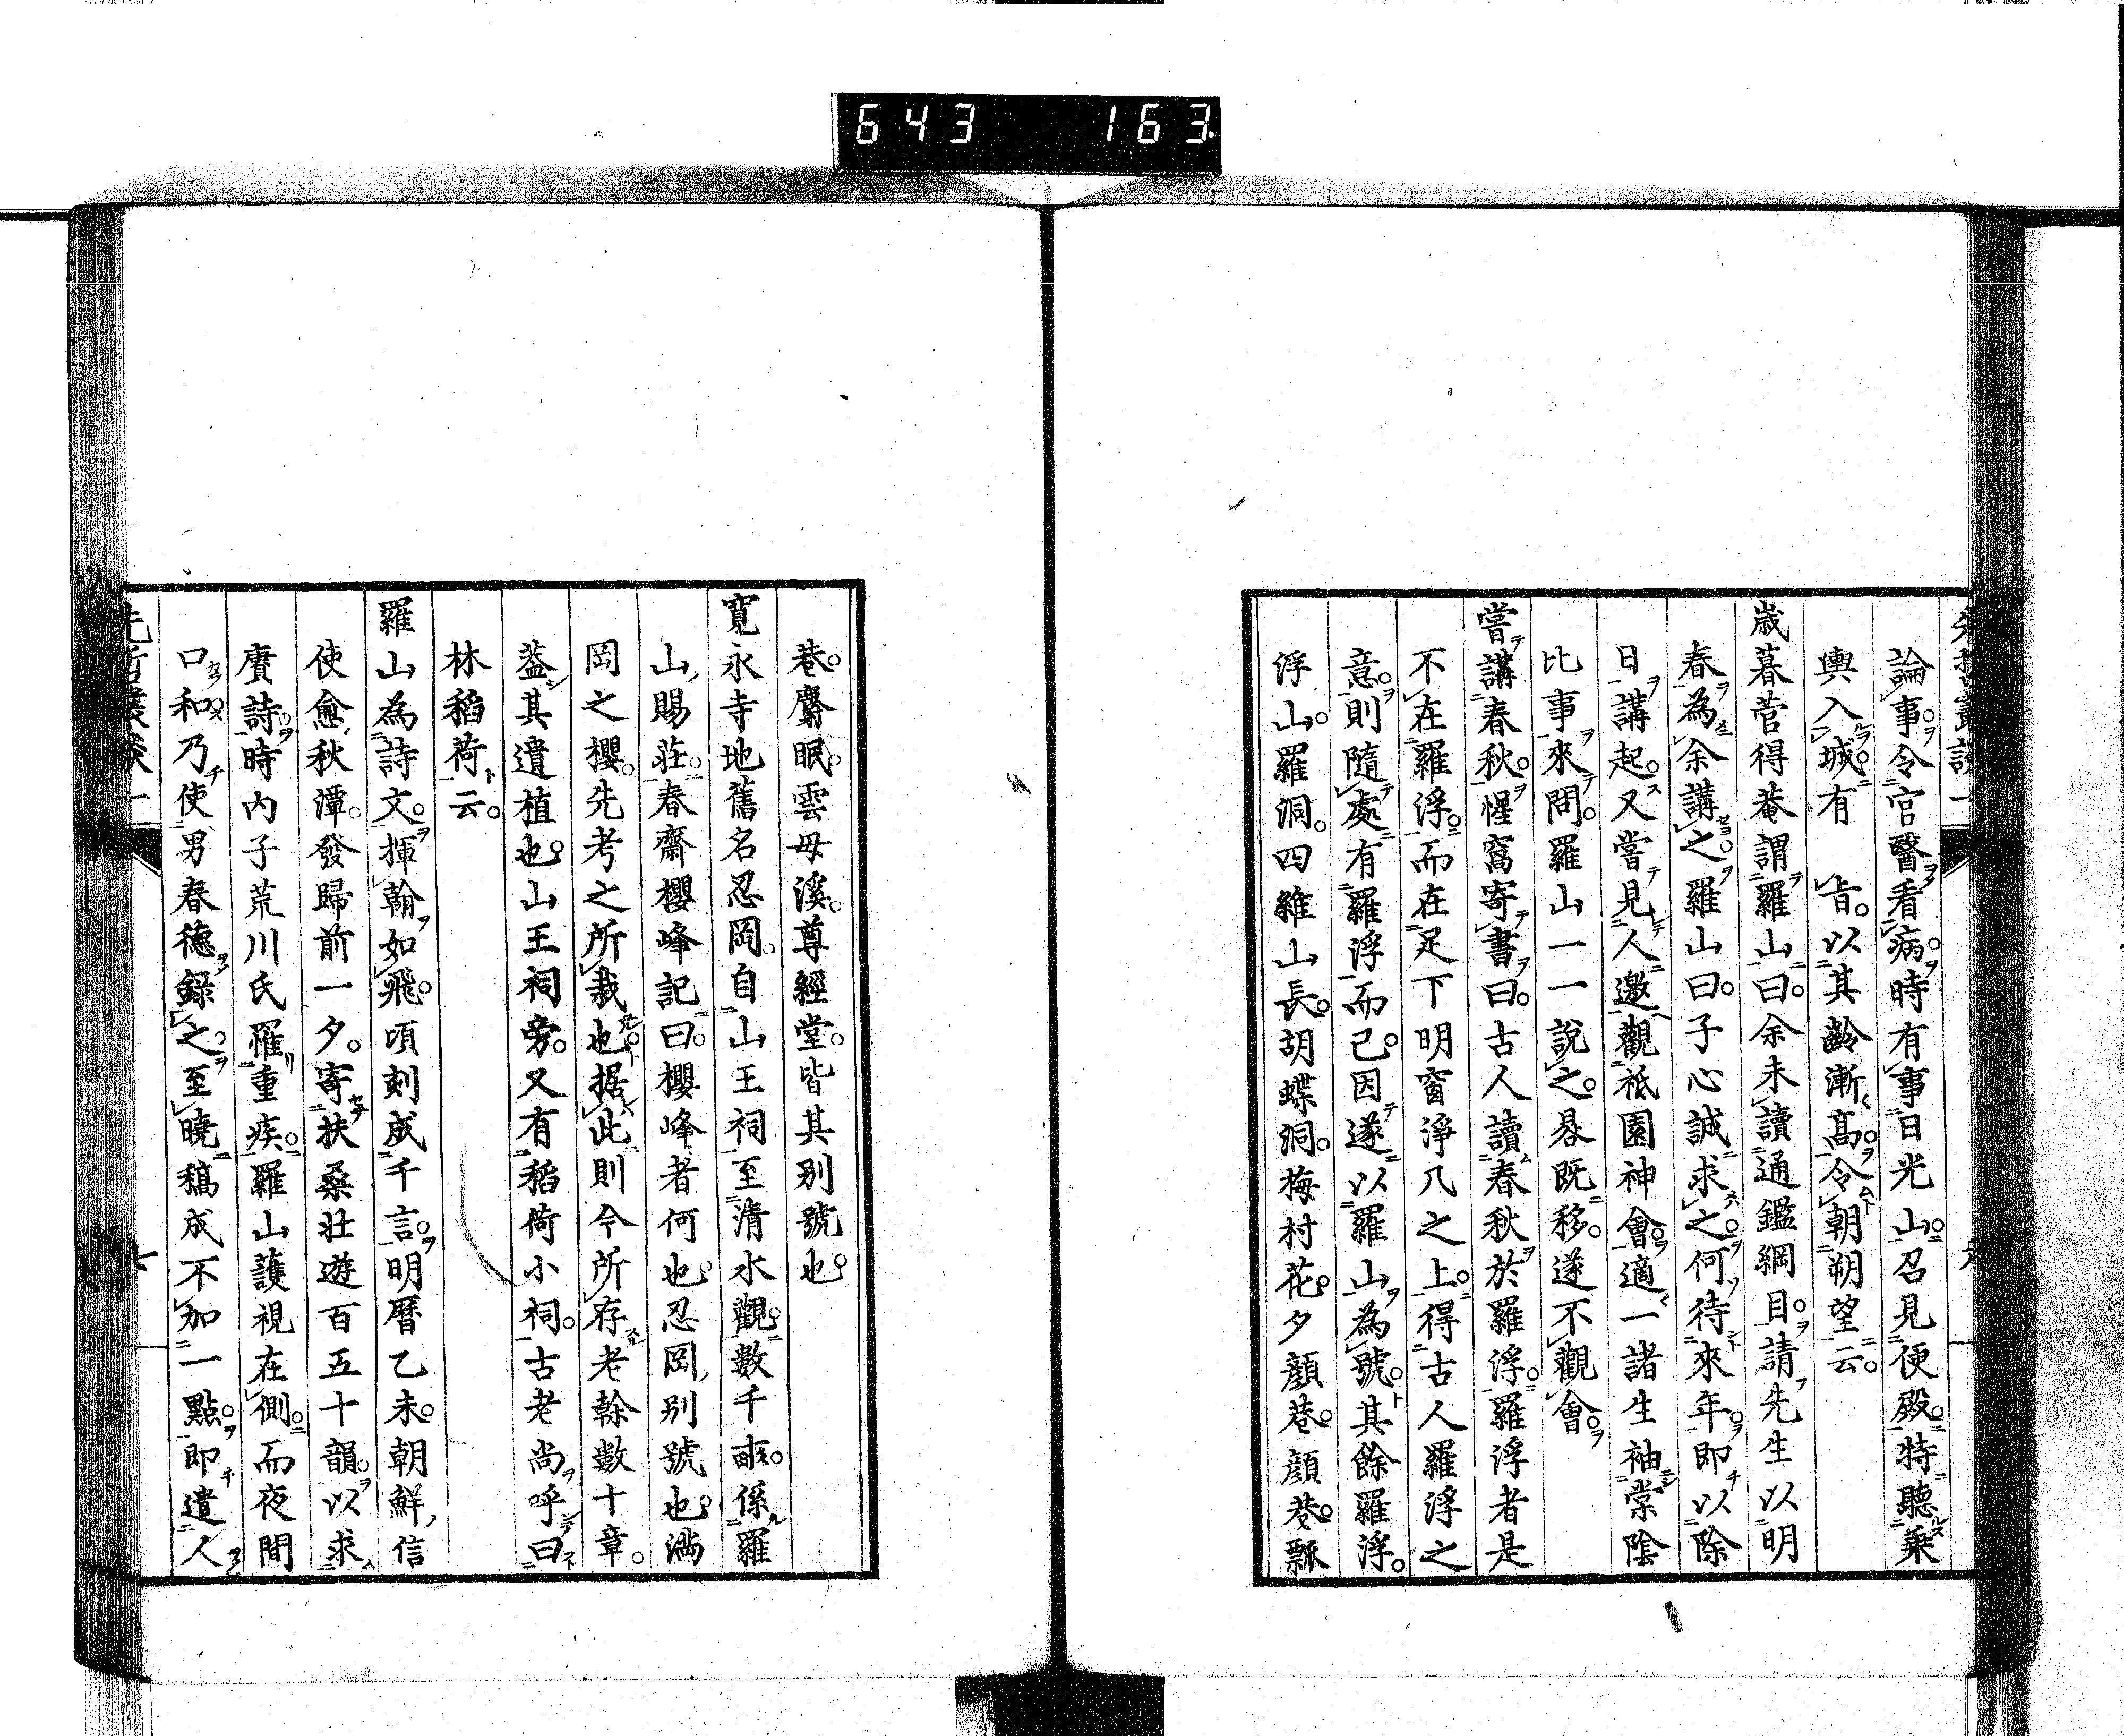 643 163.
論事。令官醫看病。時有事日光山。召見便殿。特聽乗
輿入城。有 旨。以其齡漸高。令朝朔望云。
歳暮菅得菴謂羅山曰。余未讀通鑑綱目。請先生以明
春為余講之。羅山曰。子心誠求之。何待來年。即以除
日講起。又嘗見人邀觀祗園神會。適一諸生袖棠陰
比事來問。羅山一一說之。晷既移。遂不觀會。
嘗講春秋。惺窩寄書曰。古人讀春秋於羅浮。羅浮者是
不在羅浮。而在足下明窗淨几之上。得古人羅浮之
意。則隨處有羅浮而已。因遂以羅山為號。其餘羅浮。
浮山。羅洞。四維山長。胡蝶洞。梅村花。夕顔巷。顔巷。瓢
巷。麝眠。雲母溪。尊經堂。皆其別號也。
寛永寺地舊名忍岡。自山王祠至清水觀。數千畝。係羅
山賜莊。春齋櫻峰記曰。櫻峰者何也。忍岡別號也。滿
岡之櫻。先考之所栽也。据此則今所存老幹數十章。
葢其遺植也。山王祠旁。又有稻荷小祠。古老尚呼曰
林稻荷云。
羅山為詩文。揮翰如飛。頃刻成千言。明曆乙未。朝鮮信
使愈秋潭。發歸前一夕。寄扶桑壯遊百五十韻。以求
賡詩。時内子荒川氏罹重疾。羅山護視在側。而夜間
口和。乃使男春德録之。至曉稿成。不加一點。即遣人
先哲叢談一
七